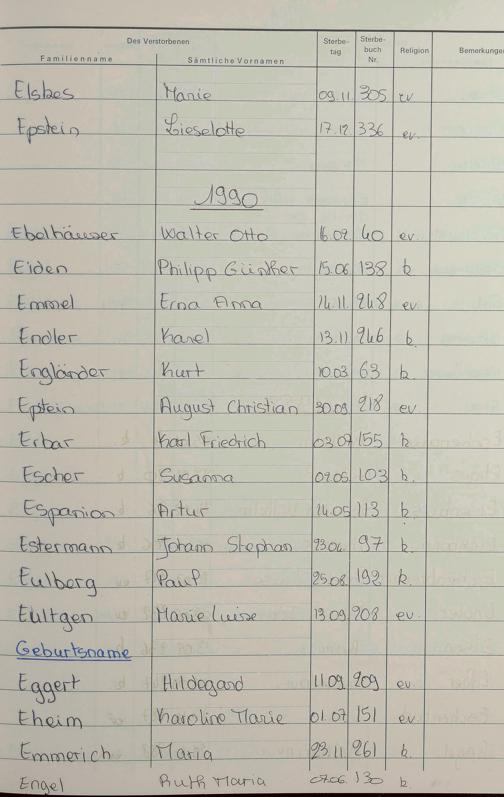 Des Verstorbenen Sterbe- Sterbe-
Familienname Sämtliche Vornamen tag buch Nr. Religion Bemerkungen
Elsbes Marie 09.11 305 ev
Epstein Lieselotte 17.12 336 ev.
1990
Ebelhäuser Walter Otto 16.02 40 ev.
Eiden Philipp Günther 15.06 138 k
Emmel Erna Anna 14.11. 248 ev.
Endler Karel 13.11 246 k.
Engländer Kurt 10.03 63 k.
Epstein August Christian 30.09 218 ev.
Erbar Karl Friedrich 03.07 155 k
Escher Susanna 103 k.
Espanion Artur 14.05 113 k
Estermann Johann Stephan 23.04. 97 k.
Eulberg Paul 25.08 192 k.
Eultgen Marie Luise 13.09 208 ev.
Geburtsname
Eggert Hildegard 11.09 209 ev.
Eheim Karoline Marie 01.07 151 ev.
Emmerich Maria 23.11 261 k.
Engel Ruth Maria 07.06. 130 k